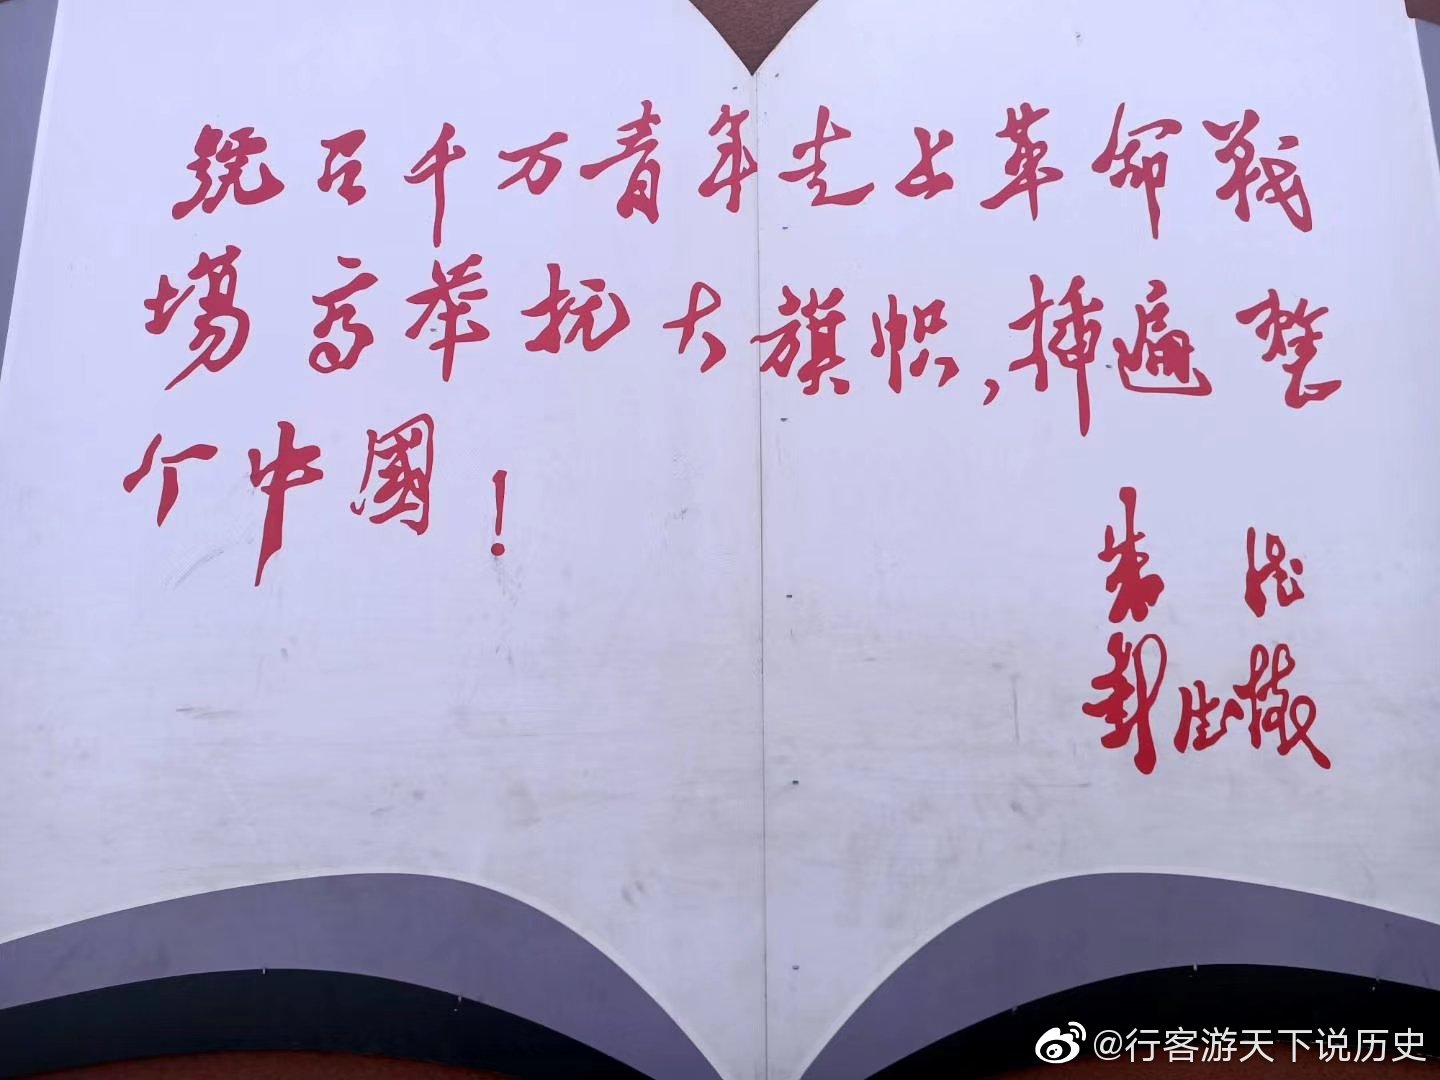 號召千万青年走上革命戰
場高举抗大旗帜,插遍整
个中國!
朱德
彭德怀
@行客游天下说历史